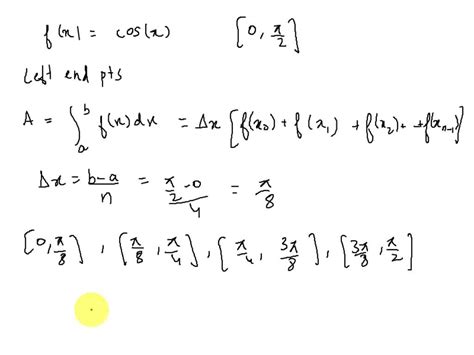 f(x) = cos(x) [0, π/2]
Left end pts
A = ∫_a^b f(x)dx = Δx [f(x₀) + f(x₁) + f(x₂) + + f(xₙ₋₁)]
Δx = b-a/n = π/2 - 0/4 = π/8
[0, π/8], [π/8, π/4], [π/4, 3π/8], [3π/8, π/2]